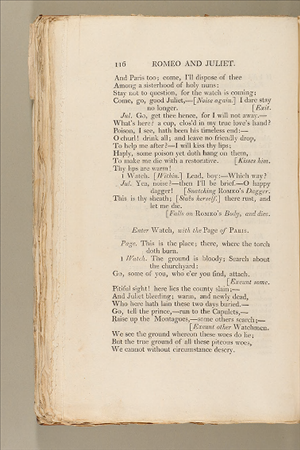 116 ROMEO AND JULIET.
And Paris too; come, I'll dispose of thee
Among a sisterhood of holy nuns:
Stay not to question, for the watch is coming;
Come, go, good Juliet,—[Noise again.] I dare stay
no longer. [Exit.
Jul. Go, get thee hence, for I will not away.—
What's here? a cup, clos'd in my true love's hand?
Poison, I see, hath been his timeless end:—
O churl! drink all; and leave no friendly drop,
To help me after?—I will kiss thy lips;
Haply, some poison yet doth hang on them,
To make me die with a restorative. [Kisses him.
Thy lips are warm!
1 Watch. [Within.] Lead, boy:—Which way?
Jul. Yea, noise?—then I'll be brief.—O happy
dagger! [Snatching ROMEO's Dagger.
This is thy sheath; [Stabs herself.] there rust, and
let me die.
[Falls on ROMEO's Body, and dies.
Enter Watch, with the Page of PARIS.
Page. This is the place; there, where the torch
doth burn.
1 Watch. The ground is bloody; Search about
the churchyard:
Go, some of you, who e'er you find, attach.
[Exeunt some.
Pitiful sight! here lies the county slain;—
And Juliet bleeding; warm, and newly dead,
Who here hath lain these two days buried.—
Go, tell the prince,—run to the Capulets,—
Raise up the Montagues,—some others search;—
[Exeunt other Watchmen.
We see the ground whereon these woes do lie;
But the true ground of all these piteous woes,
We cannot without circumstance descry.